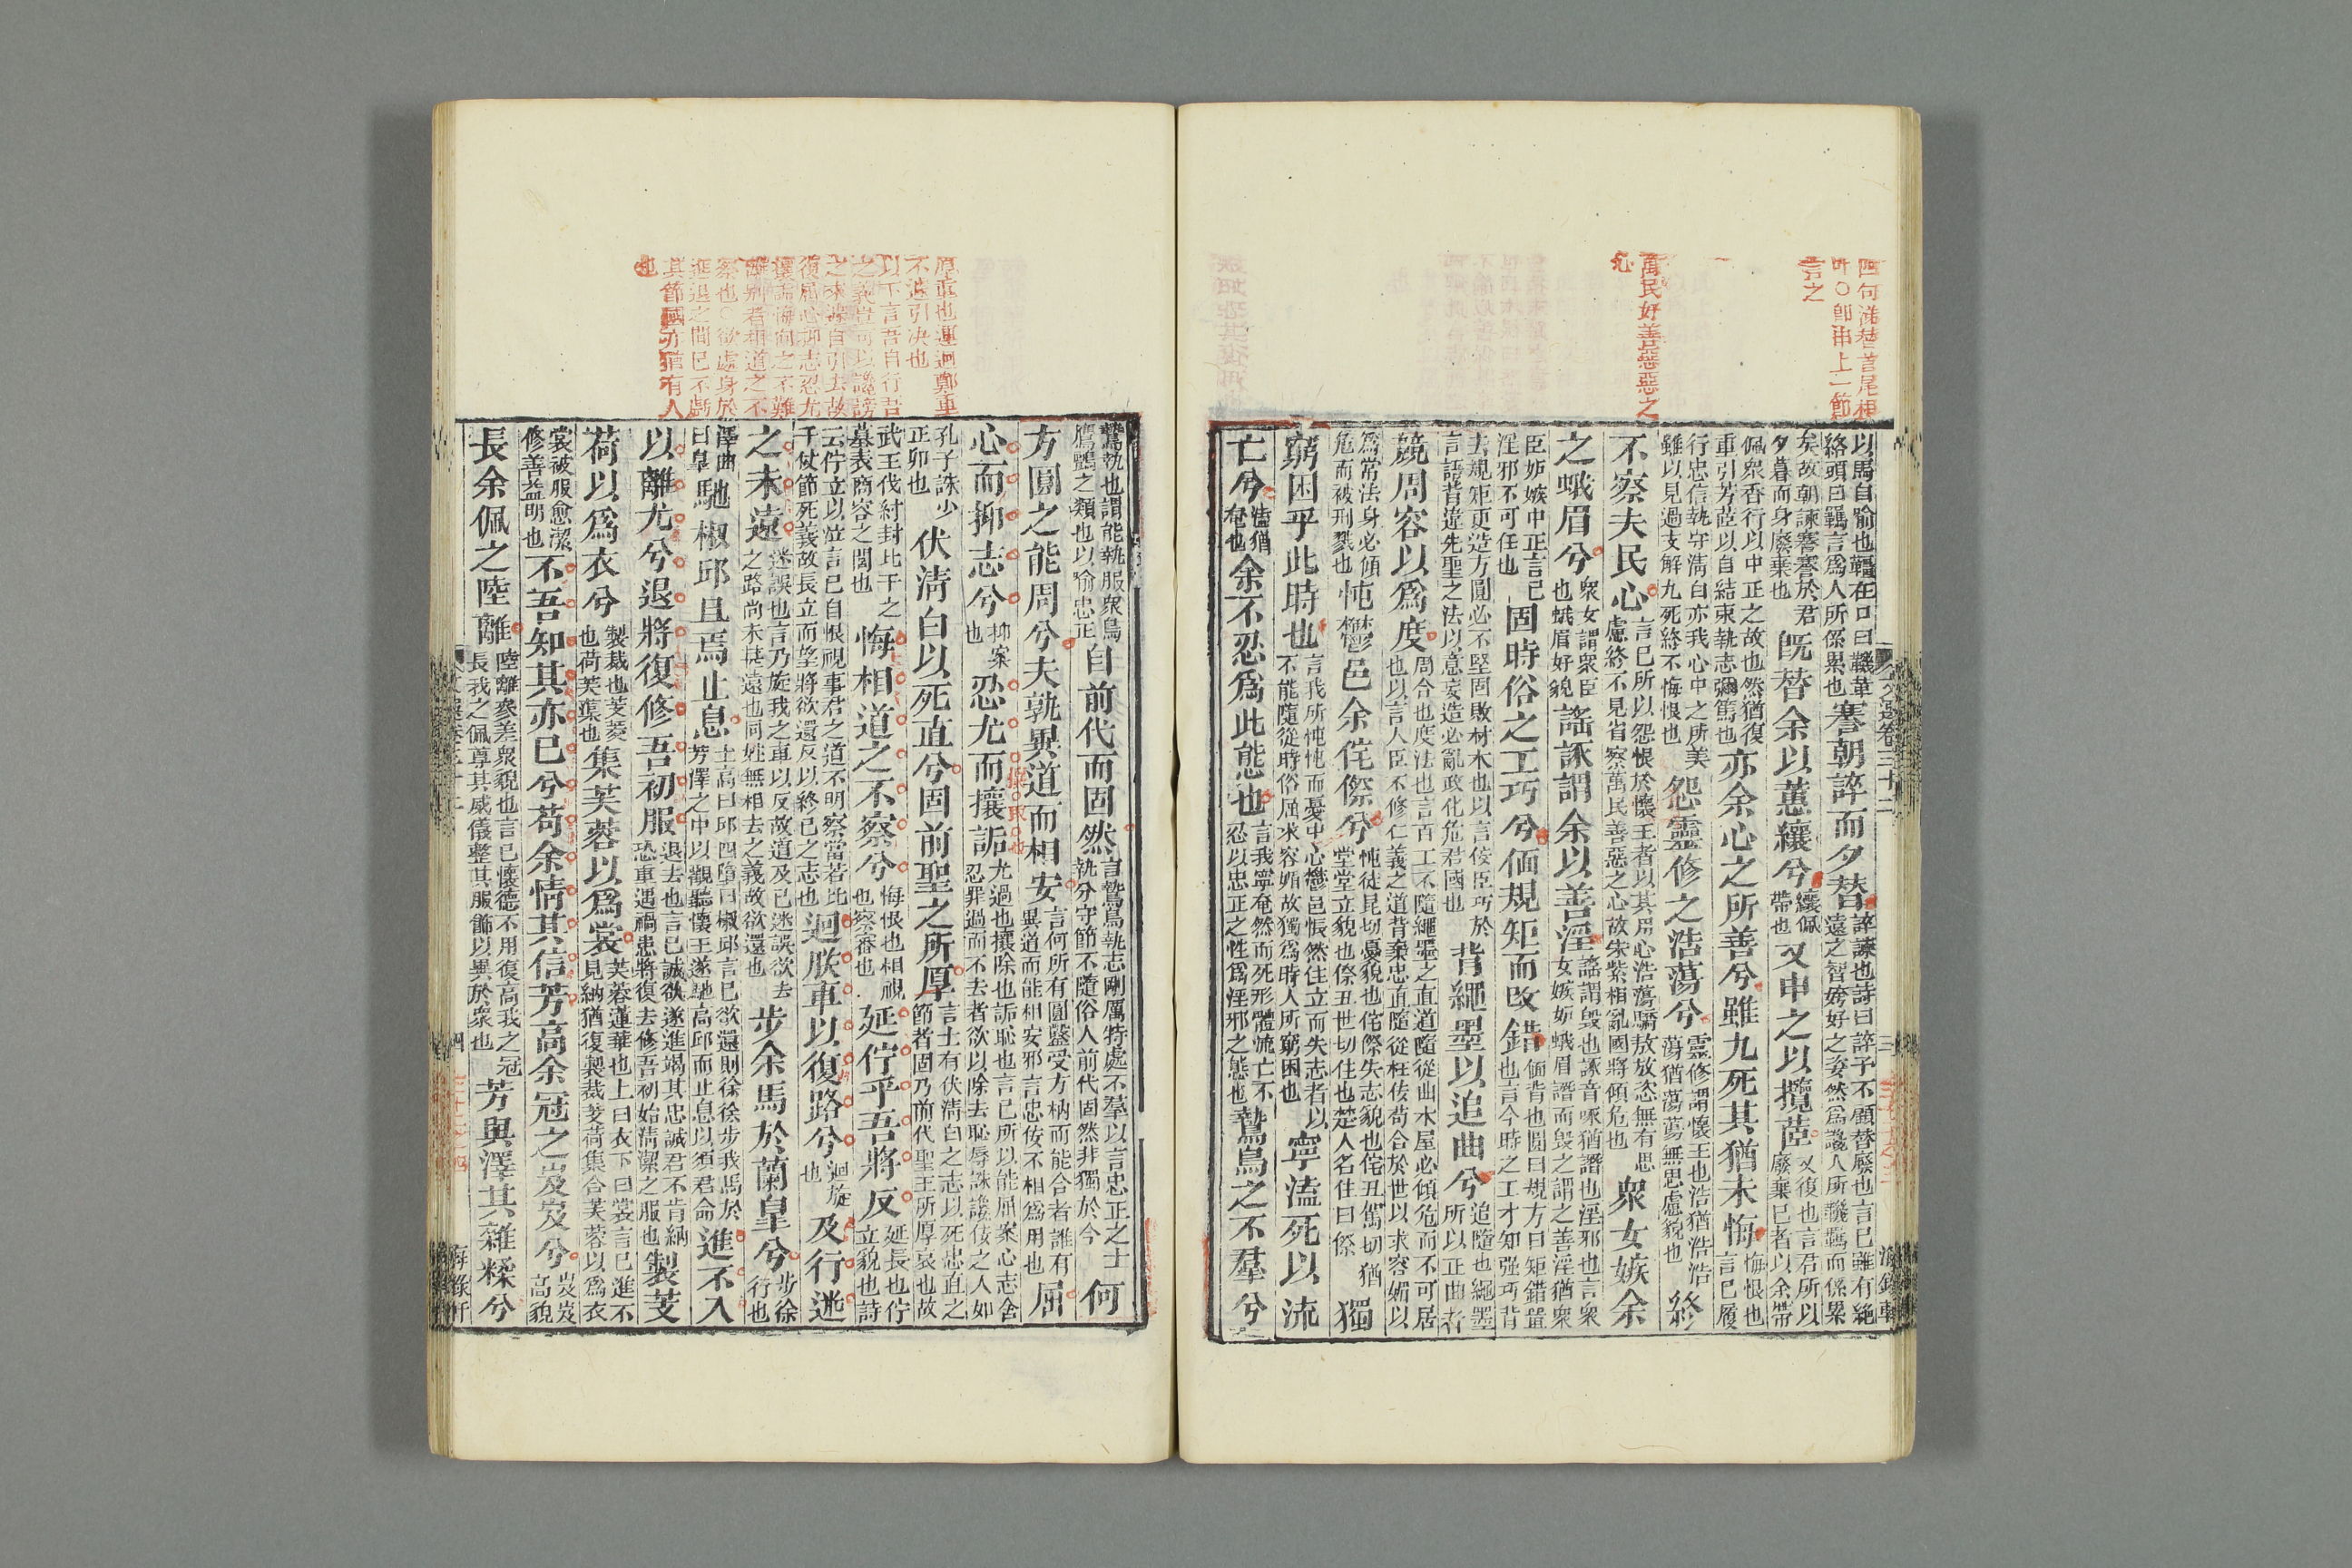 四句涕替首尾相
叶○卽串上一節
言之
萬民好善惡惡之
心
以馬自喻也韁在口曰鞿革絡頭曰羈言爲人所係累也謇朝誶而夕替誶諫也詩曰誶予不顧替廢也言已雖有絶遠之智姱好之姿然爲讒人所鞿羈而係累
矣故朝諫謇謇於君夕暮而身廢棄也旣替余以蕙纕兮纕佩帶也又申之以攬茝又復也言君所以廢棄已者以余帶
佩衆香行以中正之故也然猶復重引芳茝以自結束執志彌篤也亦余心之所善兮雖九死其猶未悔悔恨也言已履
行忠信執守淸白亦我心中之所美雖以見過支解九死終不悔恨也怨靈修之浩蕩兮靈修謂懷王也浩猶浩浩蕩猶蕩蕩無思慮貌也終
不察夫民心言已所以怨恨於懷王者以其用心浩蕩驕敖放恣無有思慮終不見省察萬民善惡之心故朱紫相亂國將傾危也衆女嫉余
之蛾眉兮衆女謂衆臣也蛾眉好貌謠諑謂余以善淫謠謂毁也諑音啄猶譖也淫邪也言衆女嫉妬蛾眉譖而毁之謂之善淫猶衆
臣妬嫉中正言已淫邪不可任也固時俗之工巧兮偭規矩而改錯偭背也圓曰規方曰矩錯置也言今時之工才知强巧背
去規矩更造方圓必不堅固敗材木也以言佞臣巧於言語背違先聖之法以意妄造必亂政化危君國也背繩墨以追曲兮追隨也繩墨所以正曲者
競周容以爲度周合也度法也言百工不隨繩墨之直道隨從曲木屋必傾危而不可居也以言人臣不修仁義之道背棄忠直隨從枉佞苟合於世以求容媚以
爲常法身必傾危而被刑戮也忳鬱邑余侘傺兮忳徒昆切憂貌也侘傺失志貌也侘丑駕切猶堂堂立貌也傺丑世切住也楚人名住曰傺獨
窮困乎此時也言我所忳忳而憂中心鬱邑悵然住立而失志者以不能隨從時俗屈求容媚故獨爲時人所窮困也寧溘死以流
亡兮溘猶奄也余不忍爲此態也言我寧奄然而死形體流亡不忍以忠正之性爲淫邪之態也鷙鳥之不羣兮
文選卷三十二 三
厚重也運迴鄭重
不遽引決也
以下言吾自行吾
之義豈可以讒謗
之來遽自引去故
復屈心抑志忍尤
攘詬悔向之不難
離別者相道之不
察也○欲處身於
進退之間已不虧
其節國亦猶有人
也
鷙執也謂能執服衆鳥鷹鸇之類也以喻忠正自前代而固然言鷙鳥執志剛厲特處不羣以言忠正之士執分守節不隨俗人前代固然非獨於今何
方圜之能周兮夫孰異道而相安言何所有圜鑿受方枘而能合者誰有異道而能相安邪言忠佞不相爲用也屈
心而抑志兮抑案也忍尤而攘詬尤過也攘除也詬恥也言已所以能屈案心志含忍罪過而不去者欲以除去恥辱誅讒佞之人如
孔子誅少正卯也伏淸白以死直兮固前聖之所厚言士有伏淸白之志以死忠直之節者固乃前代聖王所厚哀也故
武王伐紂封比干之墓表商容之閭也悔相道之不察兮悔恨也相視也察審也延佇乎吾將反延長也佇立貌也詩
云佇立以泣言已自恨視事君之道不明察當若比干仗節死義故長立而望將欲還反以終已之志也迴朕車以復路兮迴旋也及行迷
之未遠迷誤也言乃旋我之車以反故道及已迷誤欲去之路尚未甚遠也同姓無相去之義故欲還也步余馬於蘭皐兮步徐行也
澤曲曰皐馳椒邱且焉止息土高曰邱四墮曰椒邱言已欲還則徐徐步我馬於芳澤之中以觀聽懷王遂馳高邱而止息以須君命進不入
以離尤兮退將復修吾初服退去也言已誠欲遂進竭其忠誠君不肯納恐重遇禍患將復去修吾初始淸潔之服也製芰
荷以爲衣兮製裁也芰菱也荷芙蕖也集芙蓉以爲裳芙蓉蓮華也上曰衣下曰裳言已進不見納猶復製裁芰荷集合芙蓉以爲衣
裳被服愈潔修善益明也不吾知其亦已兮苟余情其信芳高余冠之岌岌兮岌岌高貌
長余佩之陸離陸離參差衆貌也言已懷德不用復高我之冠長我之佩尊其威儀整其服飾以異於衆也芳與澤其雜糅兮
文選卷三十二 四 海錄軒